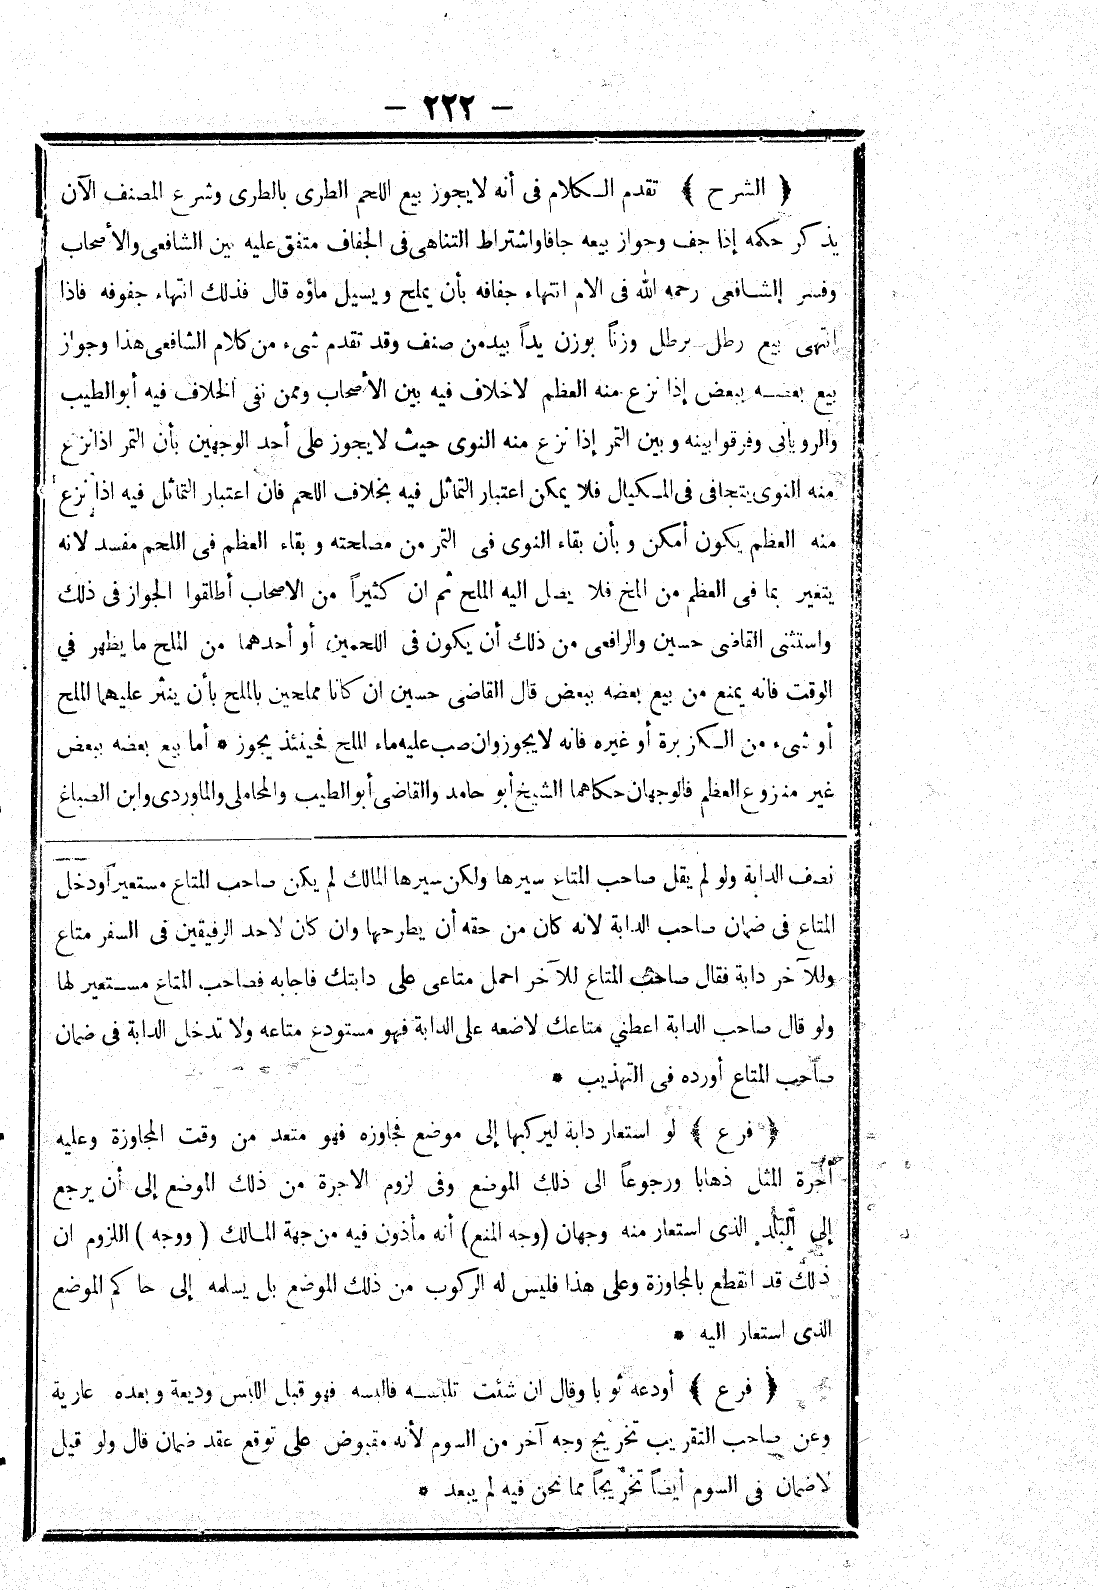 — ٢٢٢ —
﴿ الشرح ﴾ تقدم الكلام فى أنه لايجوز بيع اللحم الطرى بالطرى وشرع المصنف الآن
يذكر حكمه إذا جف وجواز بيعه جافا واشتراط التناهى فى الجفاف متفق عليه بين الشافعى والأصحاب
وفسر الشافعى رحمه الله فى الام انتهاء جفافه بأن يملح ويسيل ماؤه قال فذلك انتهاء جفوفه فاذا
انتهى بيع رطل برطل وزناً بوزن يداً بيد من صنف وقد تقدم شىء من كلام الشافعى هذا وجواز
بيع بعضه ببعض إذا نزع منه العظم لاخلاف فيه بين الأصحاب وممن نفى الخلاف فيه أبوالطيب
والرويانى وفرقوا بينه وبين التمر إذا نزع منه النوى حيث لايجوز على أحد الوجهين بأن التمر اذانزع
منه النوى يتجافى فى المكيال فلا يمكن اعتبار التماثل فيه بخلاف اللحم فان اعتبار التماثل فيه اذا نزع
منه العظم يكون أمكن وبأن بقاء النوى فى التمر من مصلحته وبقاء العظم فى اللحم مفسد لانه
يتغير بما فى العظم من المخ فلا يصل اليه الملح ثم ان كثيراً من الاصحاب أطلقوا الجواز فى ذلك
واستثنى القاضى حسين والرافعى من ذلك أن يكون فى اللحمين أو أحدهما من الملح مايظهر في
الوقت فانه يمنع من بيع بعضه ببعض قال القاضى حسين ان كانا مملحين بالملح بأن ينثر عليهما الملح
أو شىء من الكزبرة أو غيره فانه لايجوز وان صب عليه ماء الملح فحينئذ يجوز * أما بيع بعضه ببعض
غير منزوع العظم فالوجهان حكاهما الشيخ أبو حامد والقاضى أبوالطيب والمحاملى والماوردى وابن الصباغ
نصف الدابة ولو لم يقل صاحب المتاع سيرها ولكن سيرها المالك لم يكن صاحب المتاع مستعيراً ودخل
المتاع فى ضمان صاحب الدابة لانه كان من حقه أن يطرحها وان كان لاحد الرفيقين فى السفر متاع
وللآخر دابة فقال صاحب المتاع للآخر احمل متاعى على دابتك فاجابه فصاحب المتاع مستعير لها
ولو قال صاحب الدابة اعطني متاعك لاضعه على الدابة فهو مستودع متاعه ولا تدخل الدابة فى ضمان
صاحب المتاع أورده فى التهذيب *
﴿ فرع ﴾ لو استعار دابة ليركبها إلى موضع فجاوزه فهو متعد من وقت المجاوزة وعليه
أجرة المثل ذهابا ورجوعاً الى ذلك الموضع وفى لزوم الاجرة من ذلك الموضع إلى أن يرجع
إلى البلد الذى استعار منه وجهان (وجه المنع) أنه مأذون فيه من جهة المالك (ووجه) اللزوم ان
ذلك قد انقطع بالمجاوزة وعلى هذا فليس له الركوب من ذلك الموضع بل يسلمه إلى حاكم الموضع
الذى استعار اليه *
﴿ فرع ﴾ أودعه ثوبا وقال ان شئت تلبسه فالبسه فهو قبل اللبس وديعة وبعده عارية
وعن صاحب التقريب تخريج وجه آخر من السوم لأنه مقبوض على توقع عقد ضمان قال ولو قيل
لاضمان فى السوم أيضاً تخريجاً مما نحن فيه لم يبعد *